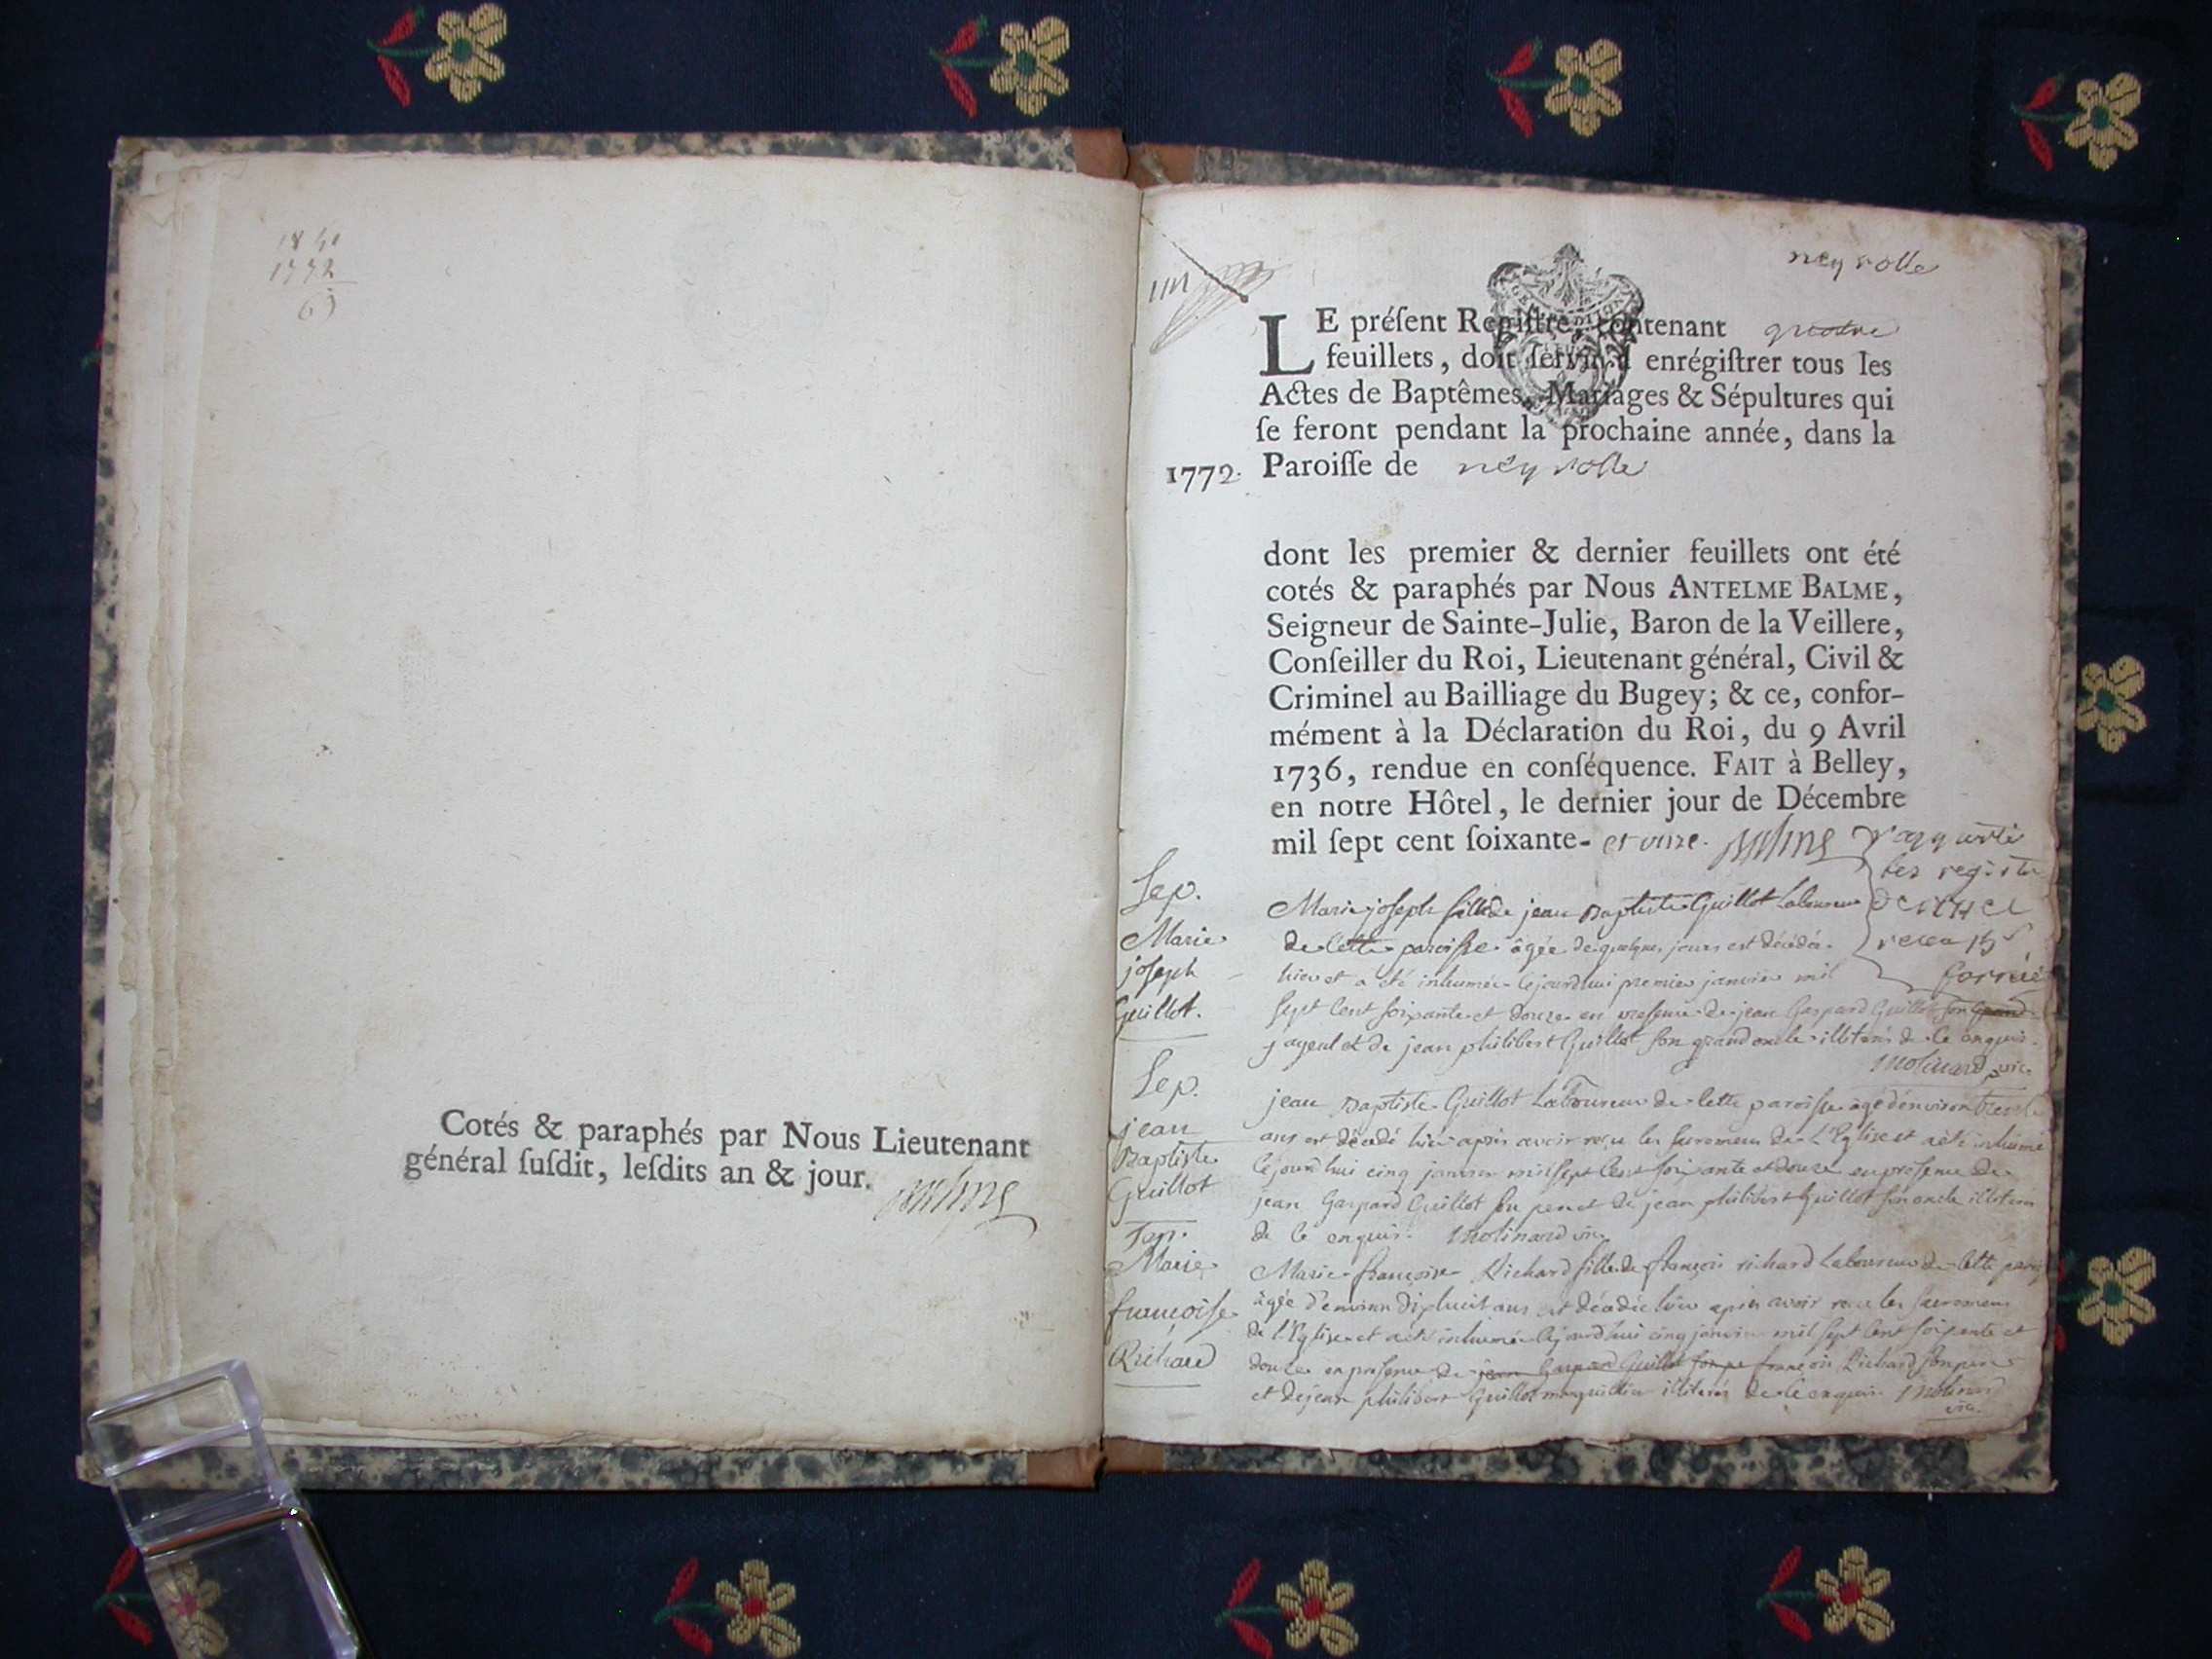 1772
Cotés & paraphés par Nous Lieutenant
général ſuſdit, leſdits an & jour.
neyrolle
LE préſent Regiſtre, contenant quatre
feuillets, doit ſervir à enrégiſtrer tous les
Actes de Baptêmes, Mariages & Sépultures qui
ſe feront pendant la prochaine année, dans la
1772. Paroiſſe de neyrolle
dont les premier & dernier feuillets ont été
cotés & paraphés par Nous ANTELME BALME,
Seigneur de Sainte-Julie, Baron de la Veillere,
Conſeiller du Roi, Lieutenant général, Civil &
Criminel au Bailliage du Bugey; & ce, confor-
mément à la Déclaration du Roi, du 9 Avril
1736, rendue en conſéquence. FAIT à Belley,
en notre Hôtel, le dernier jour de Décembre
mil ſept cent ſoixante- et onze.
Sep.
Marie
joseph
Guillot.
Marie joseph fille de jean Baptiste Guillot Laboureur
de cette paroisse âgée de quelques jours est décédée
hier et a été inhumée cejourdhui premier janvier mil
sept cent soixante et douze en presence de jean Gaspard Guillot son
ayeul et de jean philibert Guillot son grand oncle illiterés de ce enquis.
Molinard vic.
Sep.
jean
Baptiste
Guillot
jean Baptiste Guillot Laboureur de cette paroisse âgé d'environ trente
ans est décédé hier après avoir reçu les sacremens de L'Eglise et a été inhumé
cejourdhui cinq janvier mil sept cent soixante et douze en presence de
jean Gaspard Guillot son pere et de jean philibert Guillot son oncle illiterés
de ce enquis. Molinard vic.
Marie
françoise
Richard
Marie françoise Richard fille de françois richard Laboureur de cette
âgée d'environ dixhuit ans est décédée hier après avoir reçu les sacremens
de l'Eglise et a été inhumée cejourdhui cinq janvier mil sept cent soixante et
douze en presence de jean Gaspard Guillot son pe françois Richard son pere
et de jean philibert Guillot illiterés de ce enquis Molinard
vic.